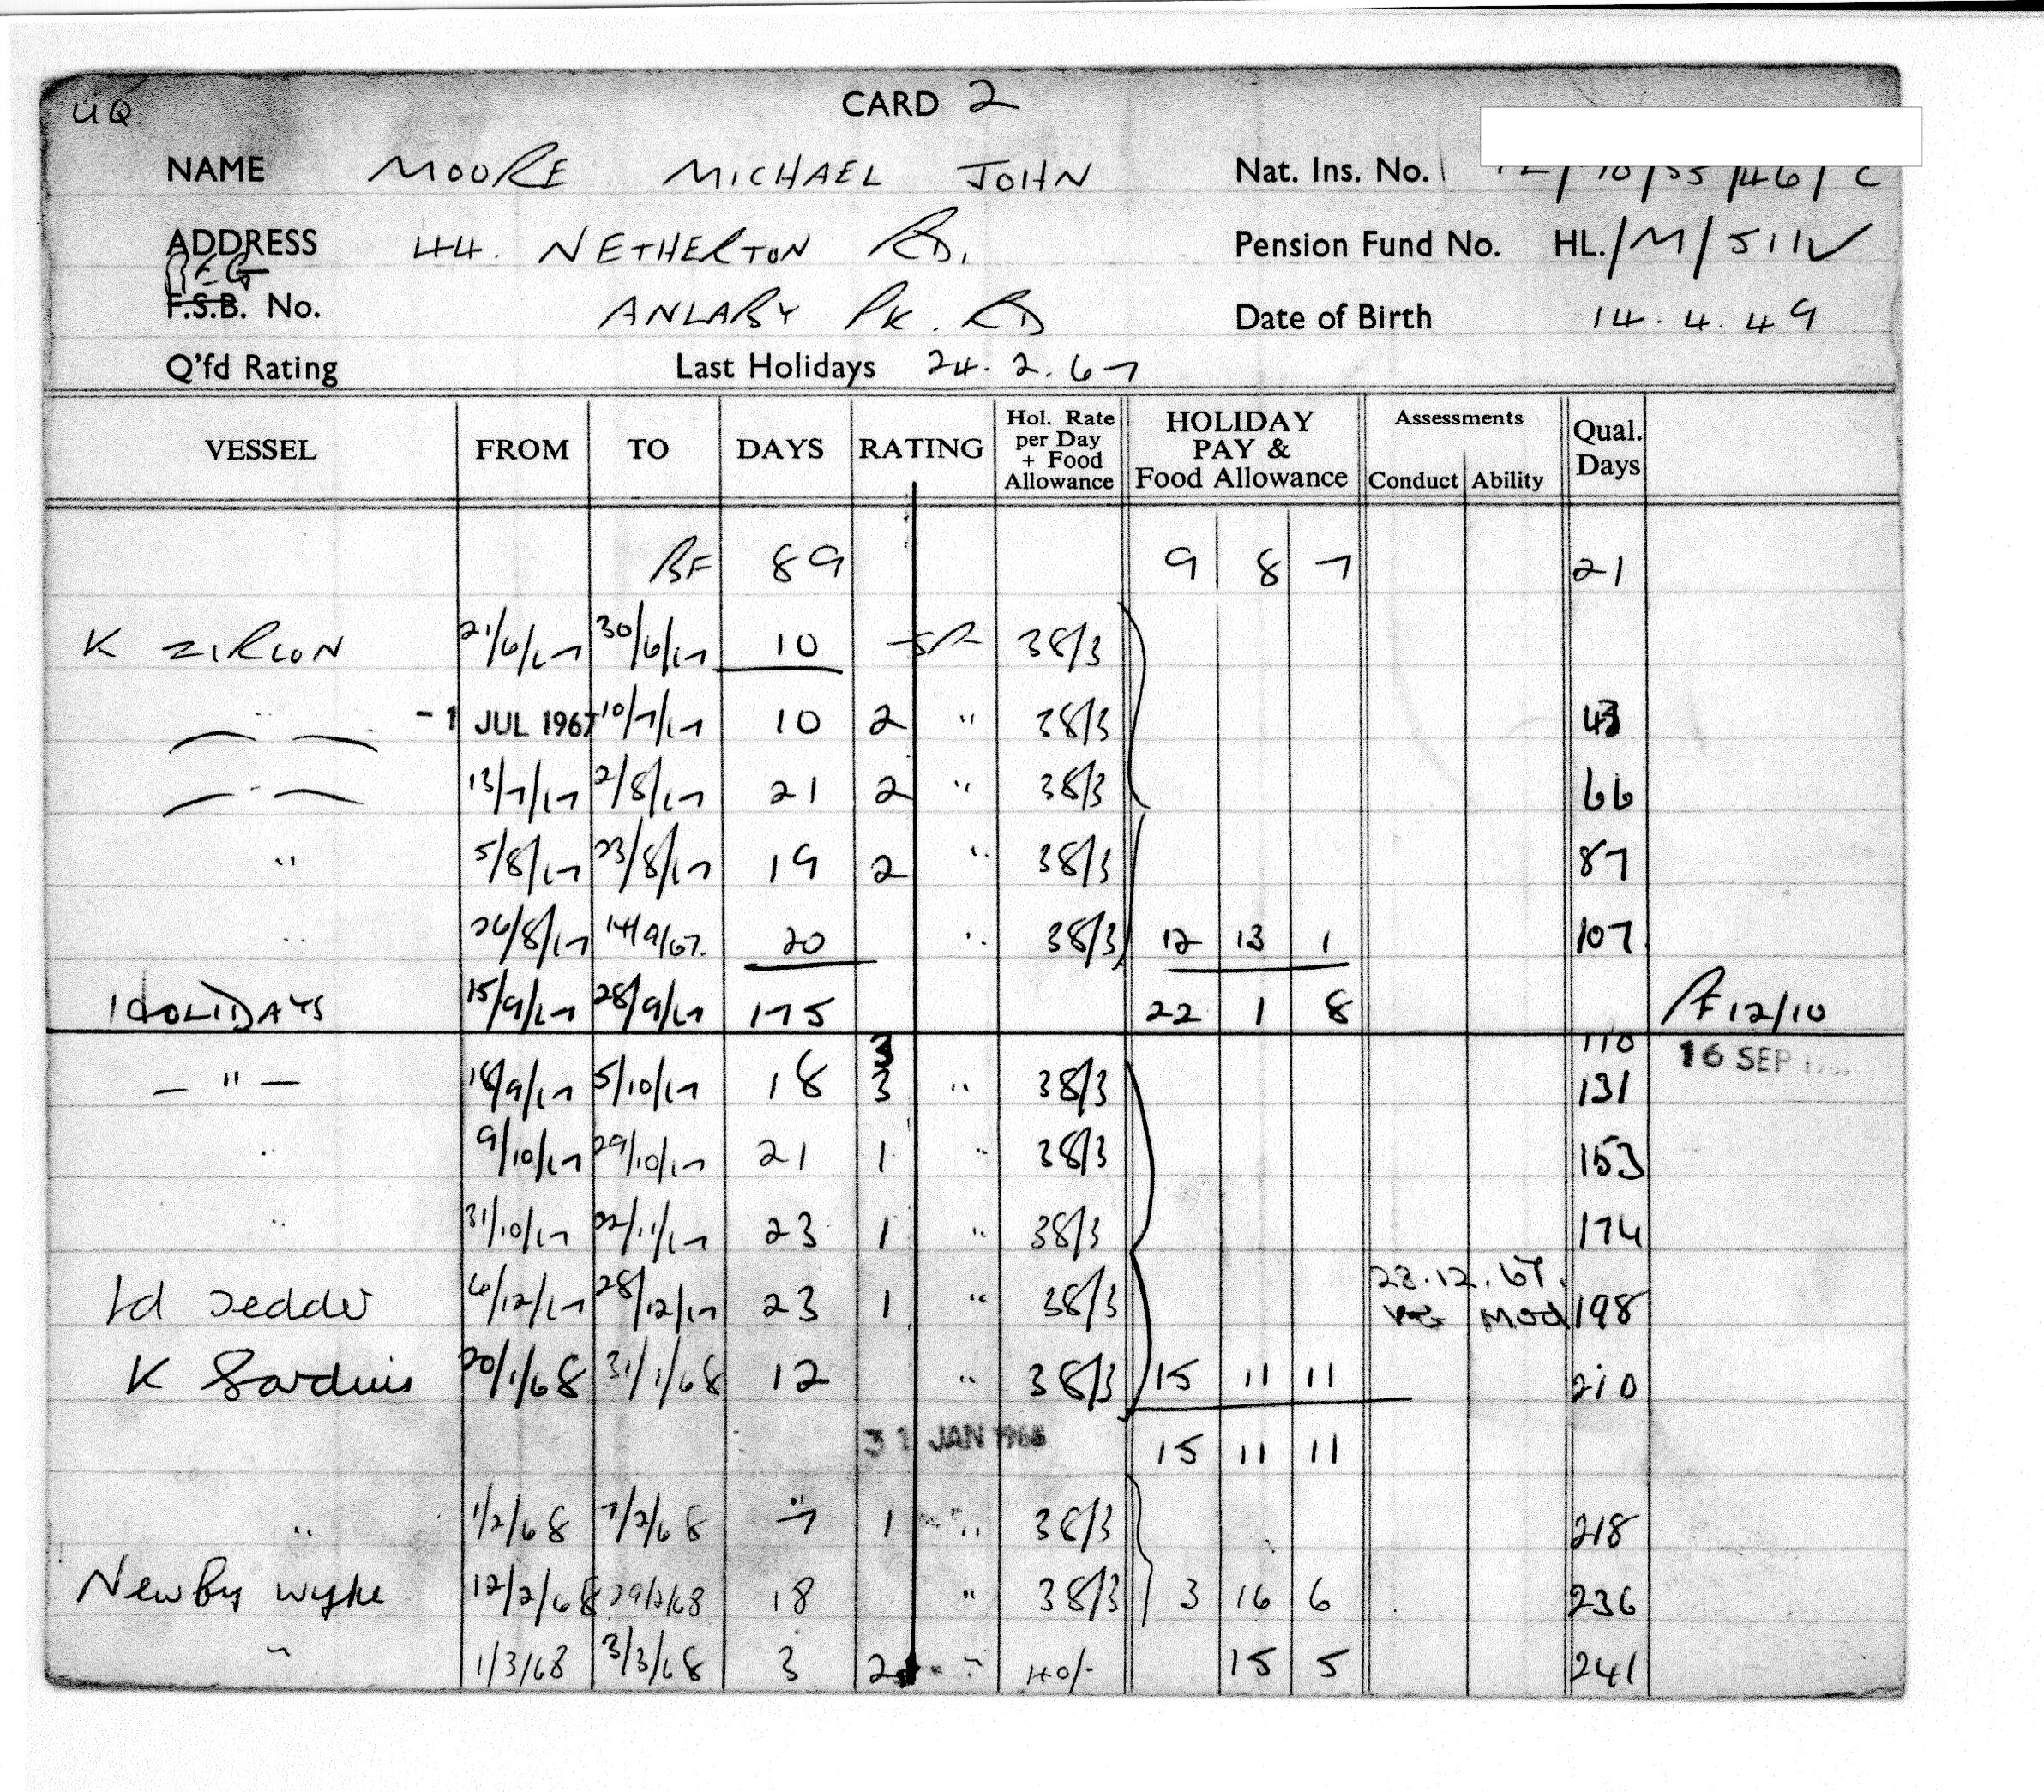 UQ
CARD 2
NAME MOORE MICHAEL JOHN Nat. Ins. No.
ADDRESS 44. NETHERTON RD, Pension Fund No. HL./M/511
REG
F.S.B. No. ANLABY PK. RD Date of Birth 14.4.49
Q'fd Rating Last Holidays 24.2.67
VESSEL FROM TO DAYS RATING Hol. Rate per Day + Food Allowance HOLIDAY PAY & Food Allowance Assessments Conduct Ability Qual. Days
BF 89 9 8 7 21
K ZIRCON 21/6/67 30/6/67 10 38/3
" -1 JUL 1967 10/7/67 10 2 " 38/3 43
" 13/7/67 2/8/67 21 2 " 38/3 66
" 5/8/67 23/8/67 19 2 " 38/3 87
" 26/8/67 14/9/67. 20 " 38/3 12 13 1 107
HOLIDAYS 15/9/67 28/9/67 175 22 1 8 12/10
3 110 16 SEP
— " — 18/9/67 5/10/67 18 3 " 38/3 131
" 9/10/67 29/10/67 21 1 " 38/3 153
" 31/10/67 22/11/67 23 1 " 38/3 174
28.12.67.
Ld 6/12/67 28/12/67 23 1 " 38/3 VG Mod 198
K Sardius 20/1/68 31/1/68 12 " 38/3 15 11 11 210
31 JAN 1968 15 11 11
" 1/2/68 7/2/68 7 1 " 38/3 218
Newby Wyke 12/2/68 29/2/68 18 " 38/3 3 16 6 236
" 1/3/68 3/3/68 3 2 " 40/- 15 5 241